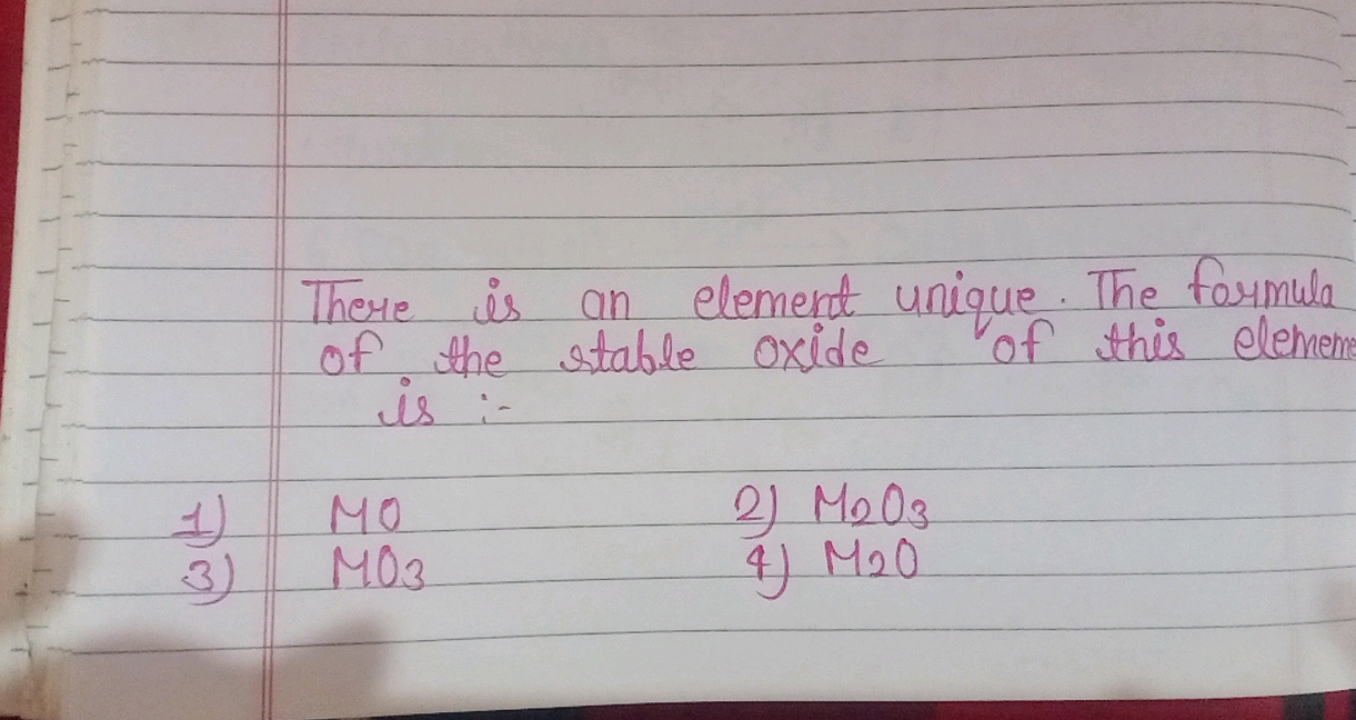 There is an element unique. The formula
of the stable oxide of this elememe
is :-
1) MO 2) M2O3
3) MO3 4) M2O